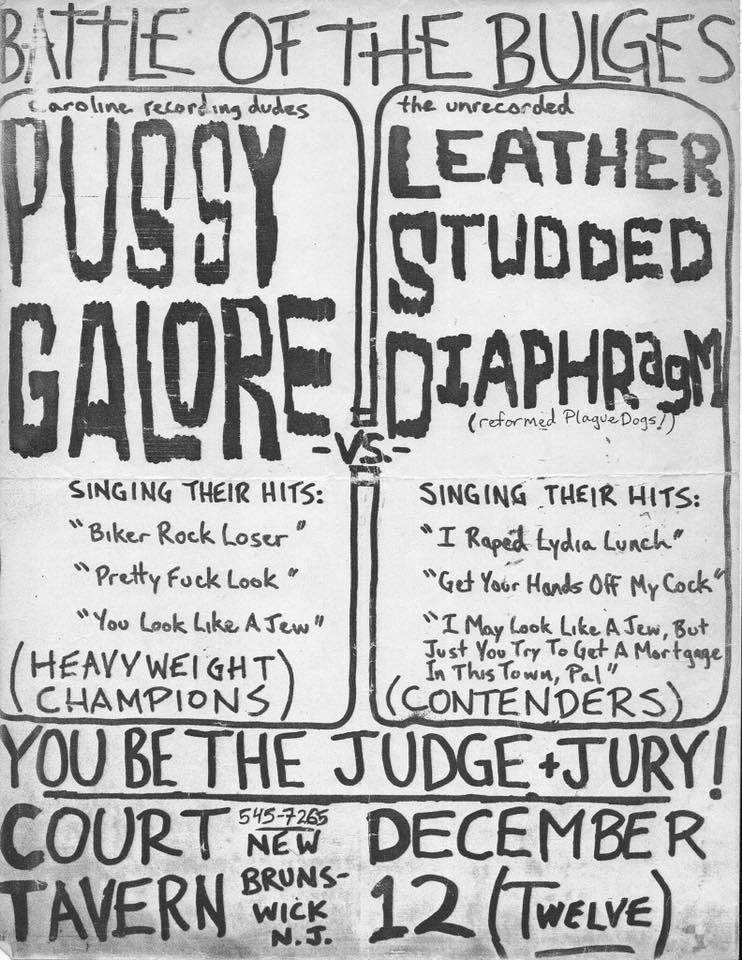 BATTLE OF THE BULGES
caroline recording dudes
PUSSY
GALORE
SINGING THEIR HITS:
"Biker Rock Loser"
"Pretty Fuck Look"
"You Look Like A Jew"
(HEAVYWEIGHT
CHAMPIONS)
-VS.-
the unrecorded
LEATHER
STUDDED
DIAPHRagM
(reformed Plague Dogs!)
SINGING THEIR HITS:
"I Raped Lydia Lunch"
"Get Your Hands Off My Cock"
"I May Look Like A Jew, But
Just You Try To Get A Mortgage
In This Town, Pal"
(CONTENDERS)
YOU BE THE JUDGE + JURY!
COURT
TAVERN
545-7265
NEW
BRUNS-
WICK
N.J.
DECEMBER
12 (TWELVE)